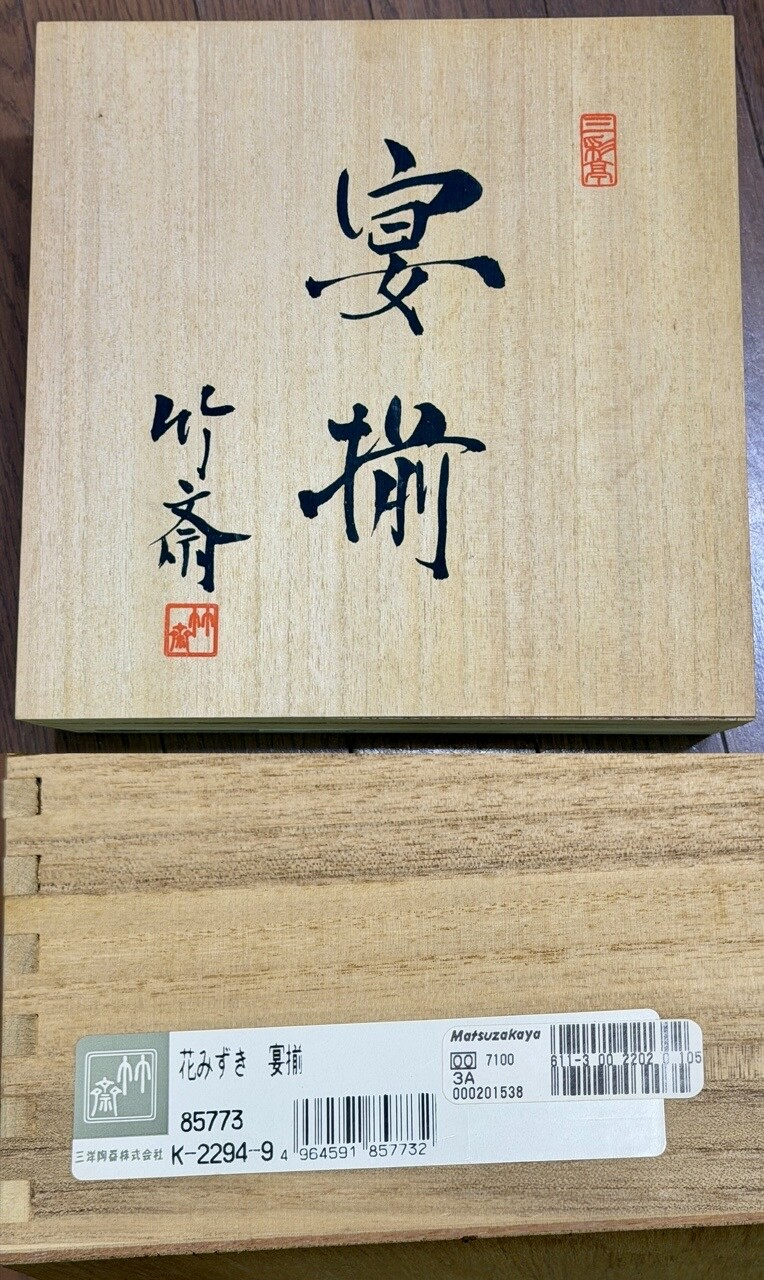 三彩亭
宴揃
竹斎
竹斎
竹斎
花みずき 宴揃
85773
K-2294-9
4 964591 857732
三洋陶器株式会社
Matsuzakaya
7100
3A
000201538
611-3 00 2202 0 105